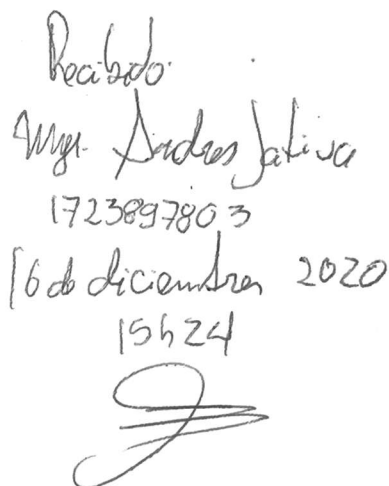 Recibido
Mgr. Andres Jativa
1723897803
16 de diciembre 2020
15h24